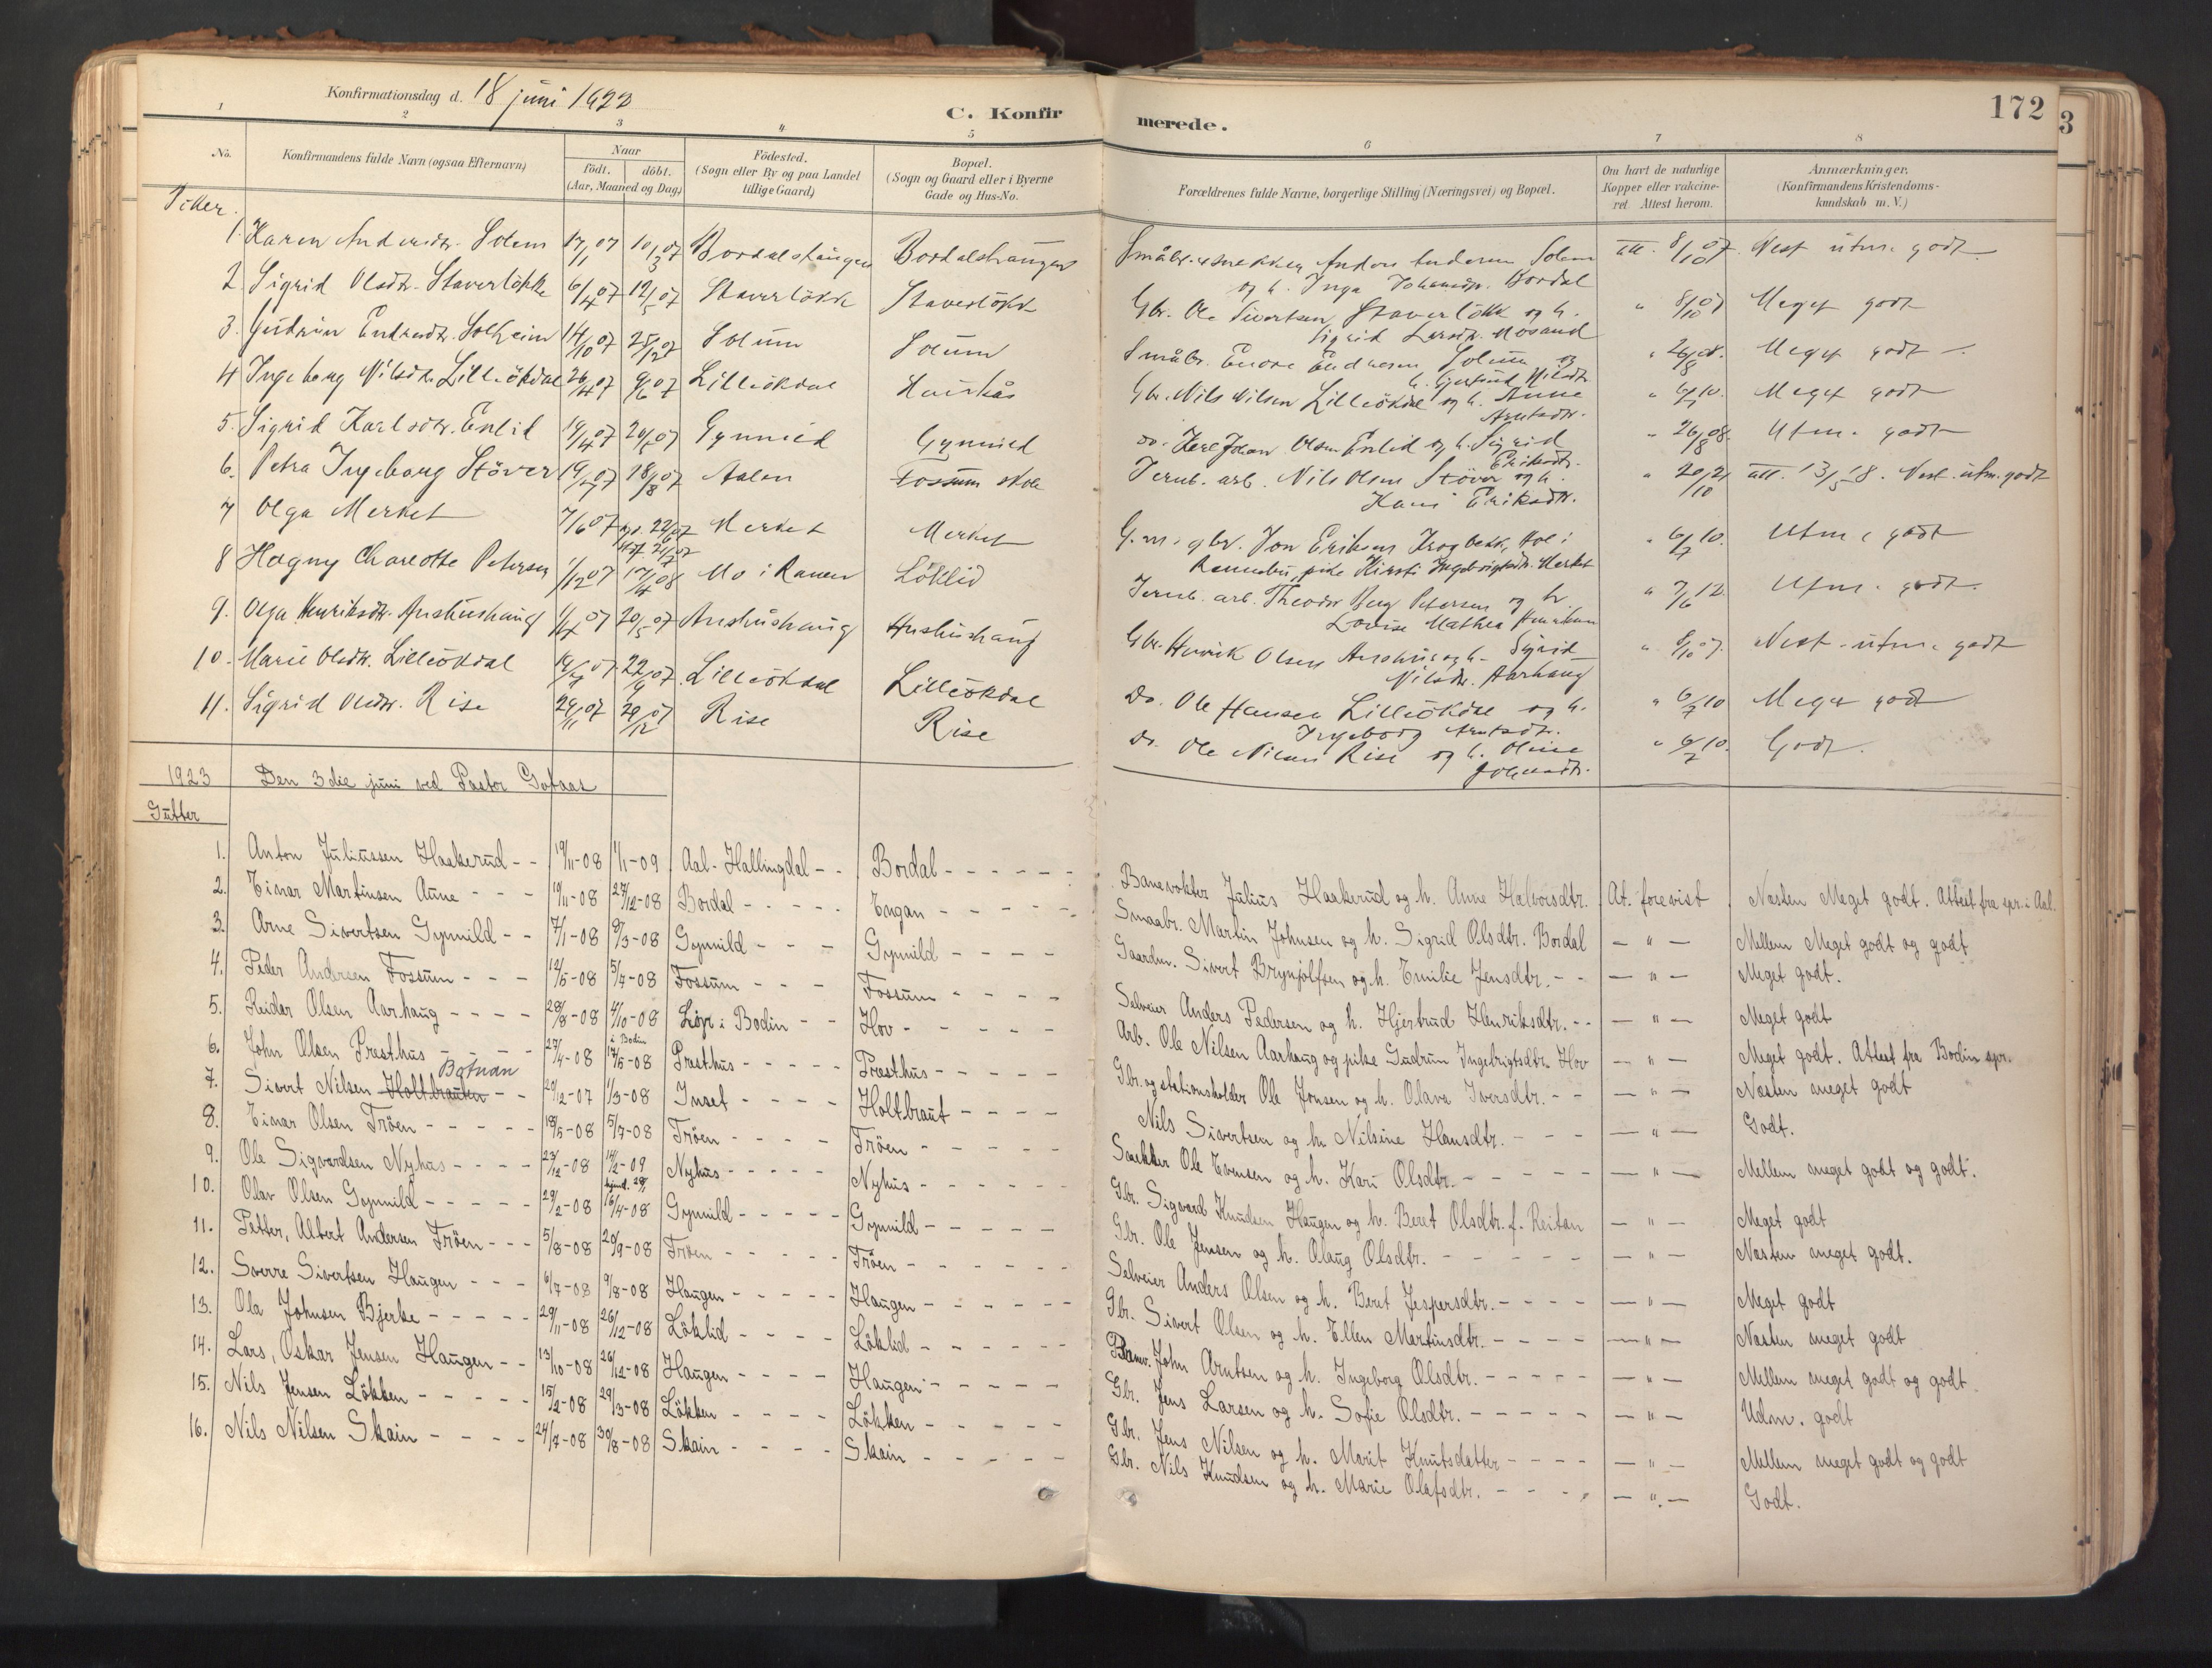 Konfirmationsdag d. 18 juni 1922
C. Konfirmerede.
172
3
1 2 3 4 5 6 7 8
No.
Konfirmandens fulde Navn (ogsaa Efternavn)
Naar
födt. döbt.
(Aar, Maaned og Dag)
Födested.
(Sogn eller By og paa Landet
tillige Gaard)
Bopæl.
(Sogn og Gaard eller i Byerne
Gade og Hus-No.
Forældrenes fulde Navne, borgerlige Stilling (Næringsvei) og Bopæl.
Om havt de naturlige
Kopper eller vakcine-
ret. Attest herom.
Anmærkninger.
(Konfirmandens Kristendoms-
kundskab m. V.)
Piker.
1. Karen Andersdtr. Solem 17/1 07 10/3 07 Bordalshaugen Bordalshaugen Småbr. snekker Anders Andersen Solem att. 8/10 07 Nest utm. godt
og h. Inga Johansdtr. Bordal
2. Sigrid Olsdtr. Staverløkke 6/4 07 12/5 07 Staverløkk Staverløkk Gbr. Ole Sivertsen Staverløkk og h. " 8/10 07 Meget godt
Sigrid Larsdr. Mosand
3. Gudrun Endresdtr. Solheim 14/10 07 25/12 07 Solum Solum Småbr. Endre Endresen Solum og " 26/8 08. Meget godt
h. Gjertrud Nilsdtr.
4 Ingeborg Nilsdtr. Lilleökdal 26/4 07 9/6 07 Lilleökdal Gbr. Nils Nilsen Lilleökdal og h. Anne " 6/7 10. Meget godt
Arntsdtr.
5. Sigrid Karlsdtr. Enlid 19/4 07 20/5 07 Gynnild Gynnild do. Karl Johan Olsen Enlid og h. Sigrid " 26/8 08. Utm. godt
Eriksdtr.
6. Petra Ingeborg Støver 19/7 07 18/8 07 Aalen Fossum skole Jernb. arb. Nils Olsen Støver og h. " 20/10 21 att. 13/5 18. Nest. utm. godt
Hans Eriksdtr.
7 Olga Merket 7/6 07 Merket Merket G. m. gbr. Jon Eriksen Krogbekk, Hol i " 6/7 10. Utm. godt
Rennebu, pike Kirsti Ingebrigtsdtr. Merket
8 Hagny Charlotte Petersen 1/12 07 17/4 08 Mo i Ranen Löklid Jernb. arb. Theodor Berg Petersen og h. " 7/6 12. Utm. godt.
Lovise Mathea Henriksen
9. Olga Henriksdtr. Aushushaug 1/4 07 20/5 07 Aushushaug Aushushaug Gbr. Henrik Olsen Aushus og h. Sigrid " 8/10 07. Nest. utm. godt
Nilsdtr. Aarhaug
10. Marie Olsdtr. Lilleökdal 14/7 07 22/9 07 Lilleökdal Lilleökdal Do. Ole Hansen Lilleökdal og h. " 6/7 10 Meget godt
Ingeborg Arntsdtr.
11. Sigrid Olsdtr. Rise 24/11 07 29/12 07 Rise Rise Do. Ole Nilsen Rise og h. Oline " 6/7 10. Godt.
Johnsdtr.
1923 Den 3die juni ved Pastor Gotaas
Gutter
1. Anton Juliussen Haakerud - - 19/11-08 1/1-09 Aal - Hallingdal - - Bordal - - - Banevokter Julius Haakerud og h. Anne Halvorsdtr. At. forevist Næsten Meget godt. Attest fra spr. i Aal.
2. Einar Martinsen Aune - - - 19/11-08 27/12-08 Bordal - - - Engan - - - Smaabr. Martin Johnsen og h. Sigrid Olsdtr. Bordal - " - Mellem Meget godt og godt
3. Arne Sivertsen Gynnild - - 7/1-08 9/3-08 Gynnild - - - Gynnild - - - Gaardm. Sivert Brynjolfsen og h. Emilie Jensdtr. - - - " - Meget godt.
4. Peder Andersen Fossum - - - 12/5-08 5/7-08 Fossum - - - Fossum - - - Selveier Anders Pedersen og h. Hjertrud Henriksdtr. - - - " - Meget godt
5. Reidar Olsen Aarhaug - - - 28/8-08 4/10-08 i Bodin Løp i Bodin - - Hov - - - Arb. Ole Nilsen Aarhaug og pike Gudrun Ingebrigtsdtr. Hov - " - Meget godt. Attest fra Bodin spr.
6. John Olsen Presthus - - - 27/4-08 17/5-08 Presthus - - - Presthus - - - Gbr. og stationsholder Ole Jonsen og h. Olava Iversdtr. - - - " - Næsten meget godt
Botnan
7. Sivert Nilsen Holtbrauten - - 20/12-07 1/3-08 Inset - - - Holtbraut - - - Nils Sivertsen og h. Nilsine Hansdtr. - - - - " - Godt.
8. Einar Olsen Tröen - - - 18/5-08 5/7-08 Tröen - - - Tröen - - - Snekker Ole Evensen og h. Kari Olsdtr. - - - - " - Mellem meget godt og godt.
9. Ole Sigvardsen Nyhus - - - 23/12-08 14/2-09 Nyhus - - - Nyhus - - - Gbr. Sigvard Knudsen Haugen og h. Beret Olsdtr. f. Reitan - " - Meget godt
10. Olav Olsen Gynnild - - - 29/2-08 16/4-08 Gynnild - - - Gynnild - - - Gbr. Ole Jensen og h. Olaug Olsdtr. - - - - " - Næsten meget godt.
11. Petter, Albert Andersen Tröen - - - 5/8-08 20/9-08 Tröen - - - Tröen - - - Selveier Anders Olsen og h. Beret Jespersdtr. - - - - " - Meget godt
12. Sverre Sivertsen Haugen - - - 6/7-08 9/8-08 Haugen - - - Haugen - - - Gbr. Sivert Olsen og h. Ellen Martinsdtr. - - - - " - Næsten meget godt
13. Ola Johnsen Bjerke - - - 29/11-08 26/12-08 Löklid - - - Löklid - - - Banv. John Arntsen og h. Ingeborg Olsdtr. - - - - " - Mellem meget godt og godt
14. Lars, Oskar Jensen Haugen - - 13/10-08 26/12-08 Haugen - - - Haugen - - - Gbr. Jens Larsen og h. Sofie Olsdtr. - - - - " - Udm. godt
15. Nils Jensen Lökken - - - 15/2-08 29/3-08 Lökken - - - Lökken - - - Gbr. Jens Nilsen og h. Marit Knutsdatter - - - - " - Mellem meget godt og godt
16. Nils Nilsen Skain - - - 24/7-08 30/8-08 Skain - - - Skain - - - Gbr. Nils Knudsen og h. Marie Olafsdtr. - - - - " - Godt.